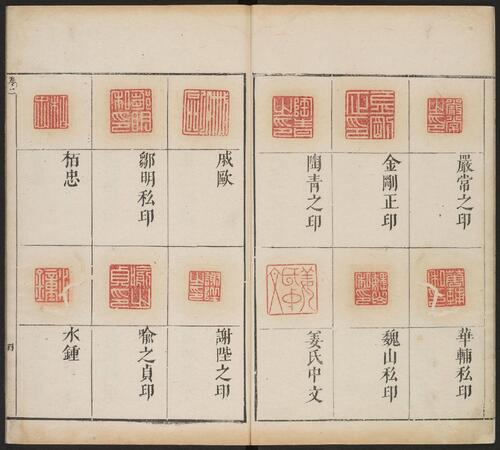 嚴常之印
金剛正印
陶青之印
華輔私印
魏山私印
姜氏中文
戚歐
鄒明私印
栢忠
謝陛之印
喻之貞印
水鍾
卷二